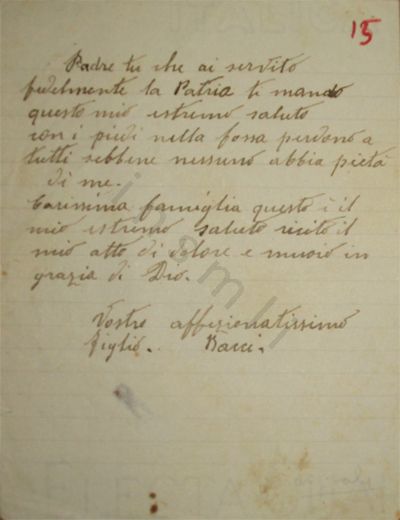 15
Padre tu che ai servito
fedelmente la Patria ti mando
questo mio estremo saluto
con i piedi nella fossa perdono a
tutti sebbene nessuno abbia pietà
di me.
Carissima famiglia questo è il
mio estremo saluto recito il
mio atto di dolore e muoio in
grazia di Dio.
Vostro affezionatissimo
figlio. Bacci.